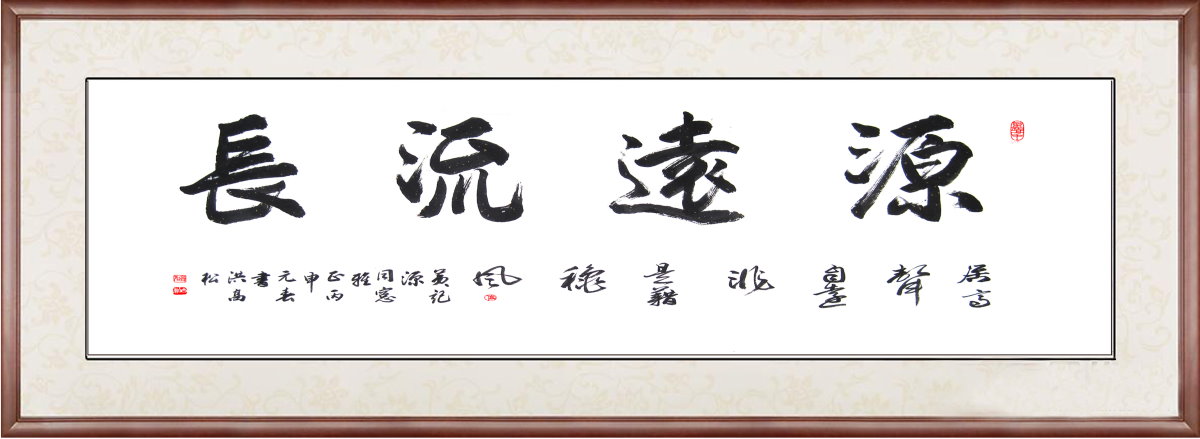 源遠流長
居高聲自遠非是藉穐風
記源同窓雅正丙申元春書洪高松